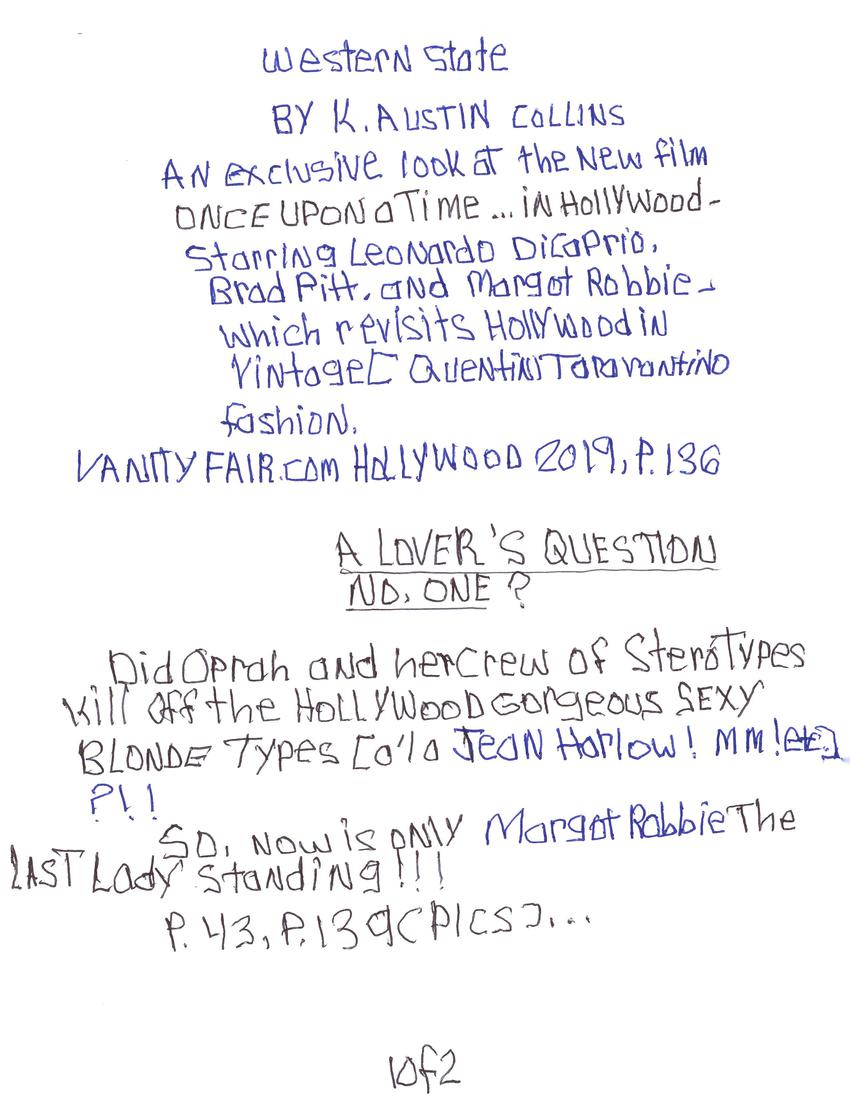 Western State
BY K. AUSTIN COLLINS
AN exclusive look at the New film
ONCE UPON a Time ... iN HollyWood -
Starring Leonardo DiCaprio,
Brad Pitt, and Margot Robbie -
which revisits HollyWood iN
Vintage[ QuentiN Taravantino
fashion.
VANITY FAIR.com HOLLYWOOD 2019, P. 136
A LOVER'S QUESTION
NO. ONE ?
Did Oprah and her Crew of SteroTypes
kill off the HOLLYWOOD Gorgeous SEXY
BLONDE Types [a'la Jean Harlow! MM! etc]
?!!
SO, NOW is ONlY Margot Robbie The
LAST Lady Standing!!!
P. 43, P. 139 (PICS)...
1 of 2